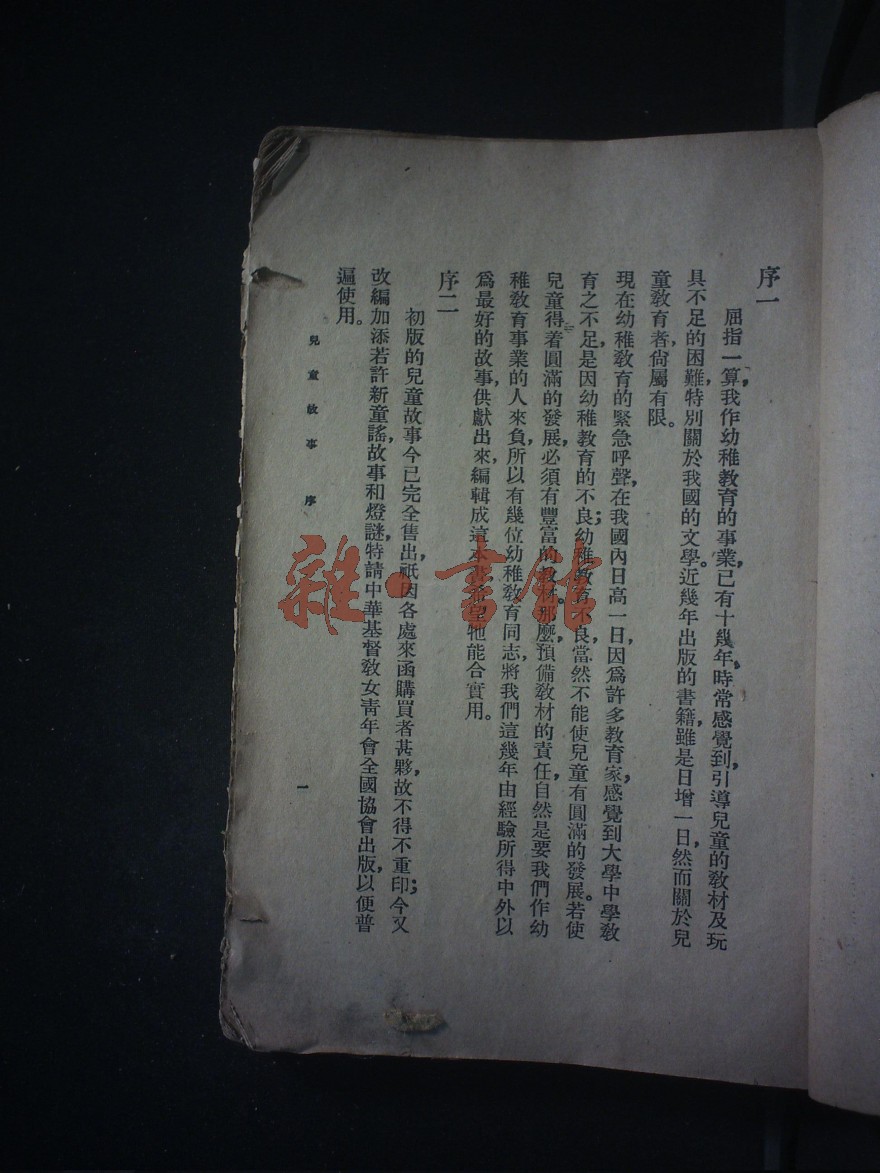 序一
屈指一算,我作幼稚教育的事業,已有十幾年,時常感覺到,引導兒童的教材及玩
具不足的困難,特別關於我國的文學。近幾年出版的書籍,雖是日增一日,然而關於兒
童教育者,尙屬有限。
現在幼稚教育的緊急呼聲,在我國內日高一日,因爲許多教育家,感覺到大學中學教
育之不足,是因幼稚教育的不良;幼稚教育不良,當然不能使兒童有圓滿的發展。若使
兒童得着圓滿的發展,必須有豐富的教材。那麼,預備教材的責任,自然是要我們作幼
稚教育事業的人來負,所以有幾位幼稚教育同志,將我們這幾年由經驗所得中外以
爲最好的故事,供獻出來,編輯成這本書,希望牠能合實用。
序二
初版的兒童故事今已完全售出,祇因各處來函購買者甚夥,故不得不重印;今又
改編加添若許新童謠,故事和燈謎,特請中華基督教女青年會全國協會出版,以便普
遍使用。
兒童故事 序
一
雜·書館